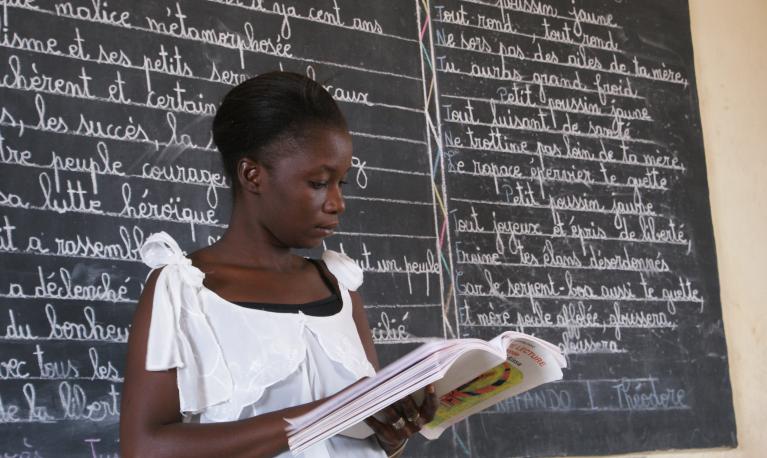 que malice métamorphosée
y a cent ans
isme et ses petits
chèrent et certain
caux
s, les succès, la
tre peuple courag
sa lutte héroïque
t a rassembl
tout un peuple
a déclenché
du bonheur
cilié
avec tous les
de la libert
poussin jaune
Tout rond, tout rond
Ne sors pas des ailes de ta mère,
Tu auras grand froid
Petit poussin jaune
Tout luisant de santé
Ne trottine pas loin de ta mère
Le rapace épervier te guette
Petit poussin jaune
Tout joyeux et épris de liberté,
Freine tes élans désordonnés
Car le serpent-boa aussi te guette,
Et mère poule affolée, gloussera
gloussera
NAFANDO I Théodore
LECTURE